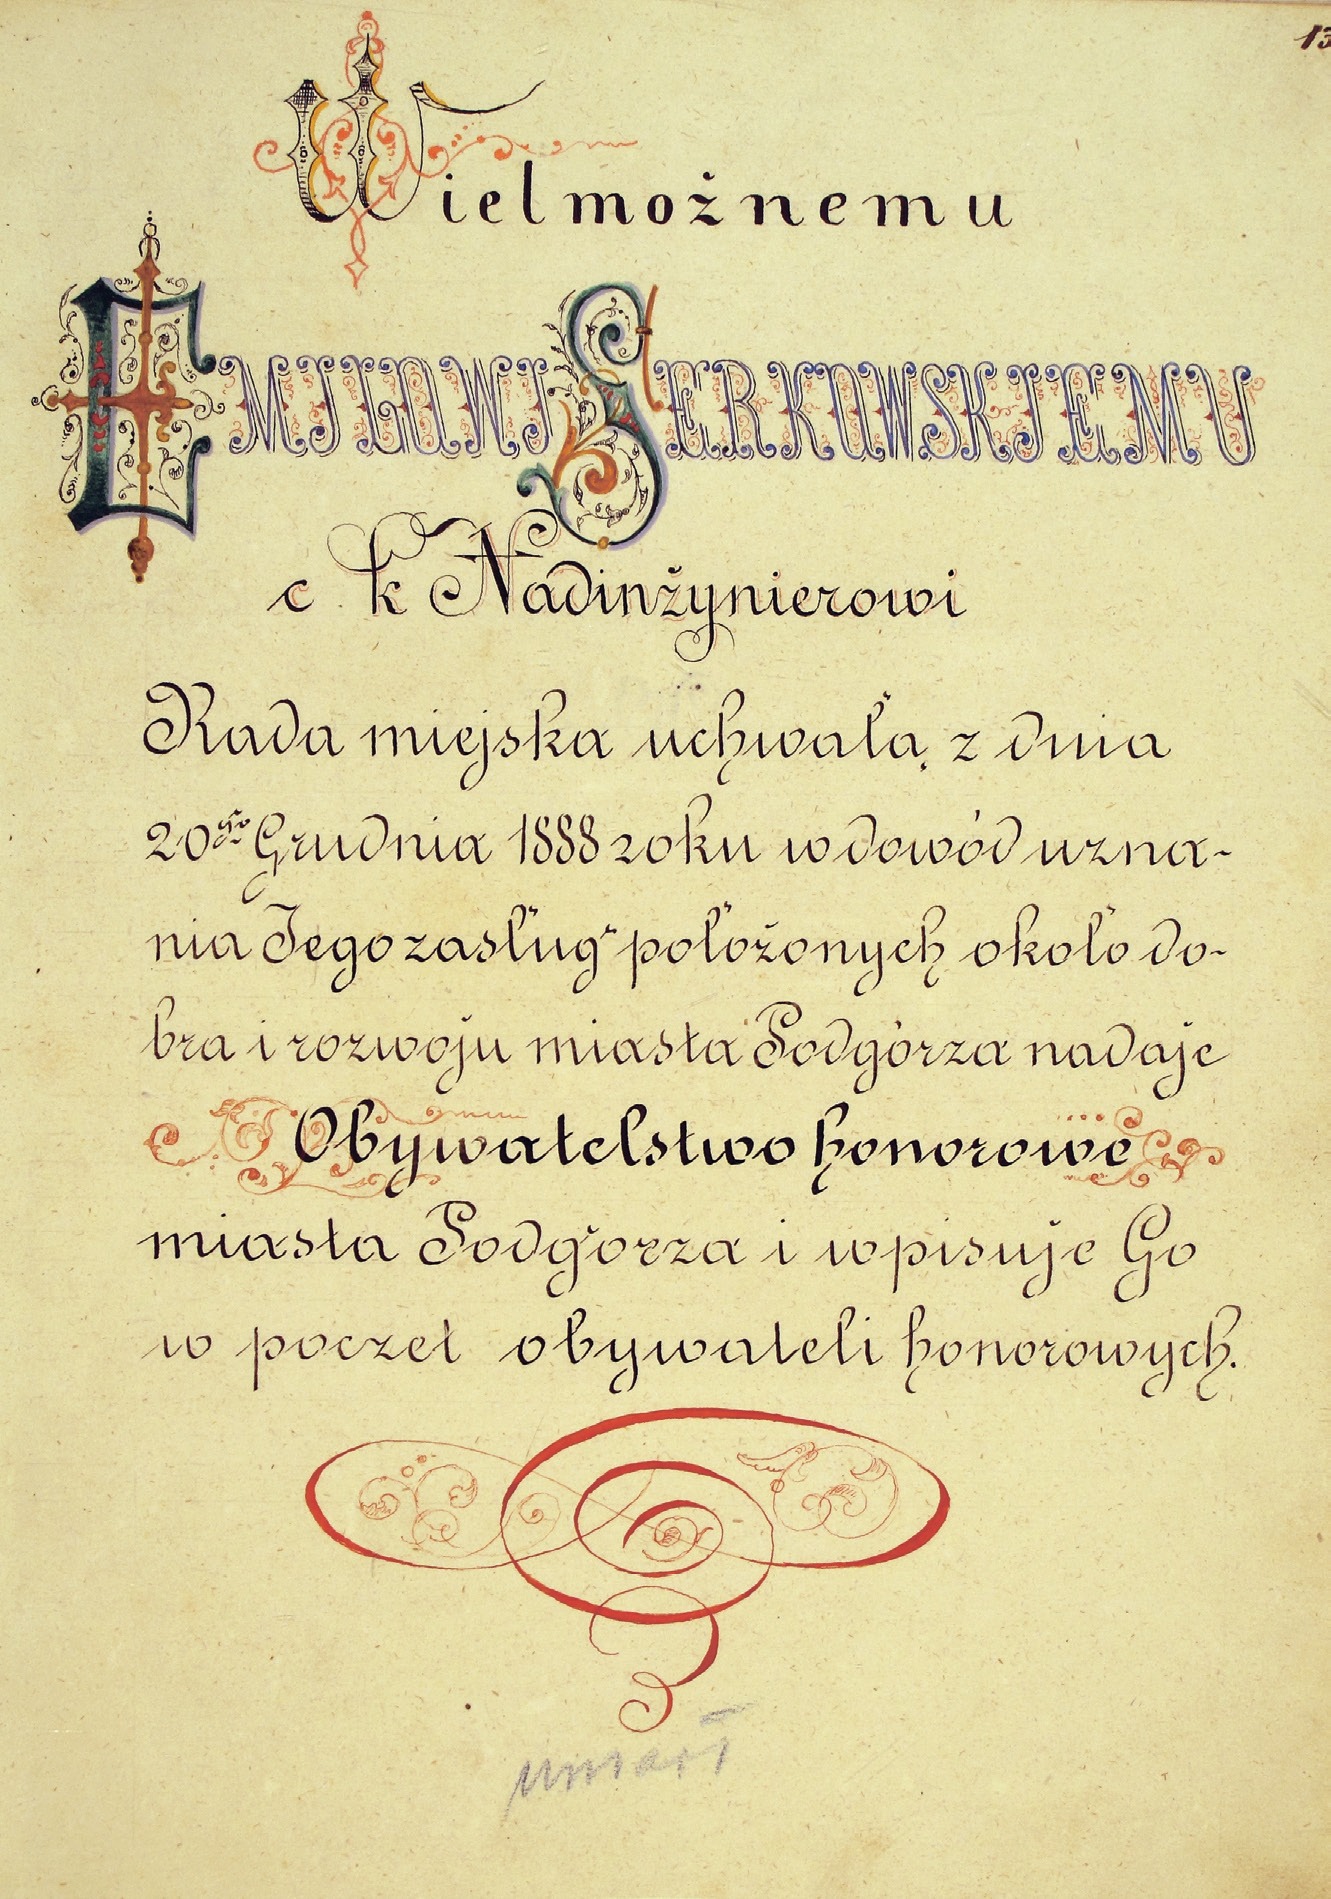 13
Wielmożnemu
EMILOWI SERKOWSKIEMU
c. k Nadinżynierowi
Rada miejska uchwałą z dnia
20go Grudnia 1888 roku w dowód uzna-
nia Jego zasług położonych około do-
bra i rozwoju miasta Podgórza nadaje
Obywatelstwo honorowe
miasta Podgórza i wpisuje Go
w poczet obywateli honorowych.
umarł